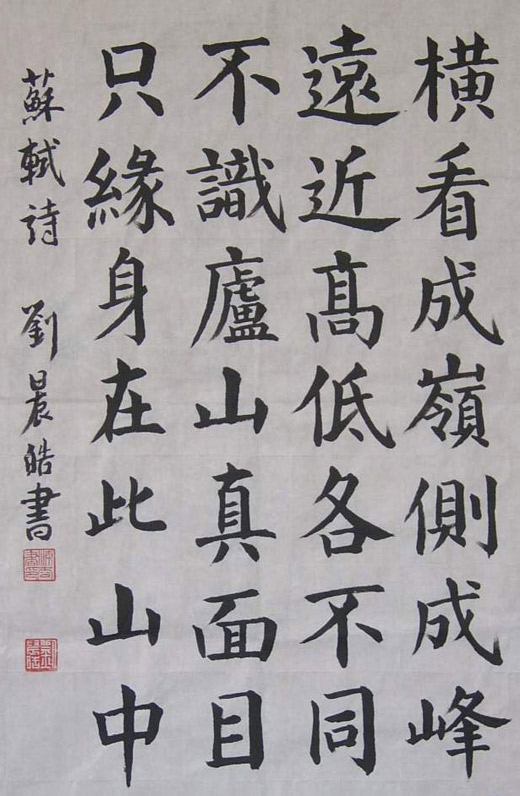 橫看成嶺側成峰
遠近高低各不同
不識廬山真面目
只緣身在此山中
蘇軾詩 劉晨皓書